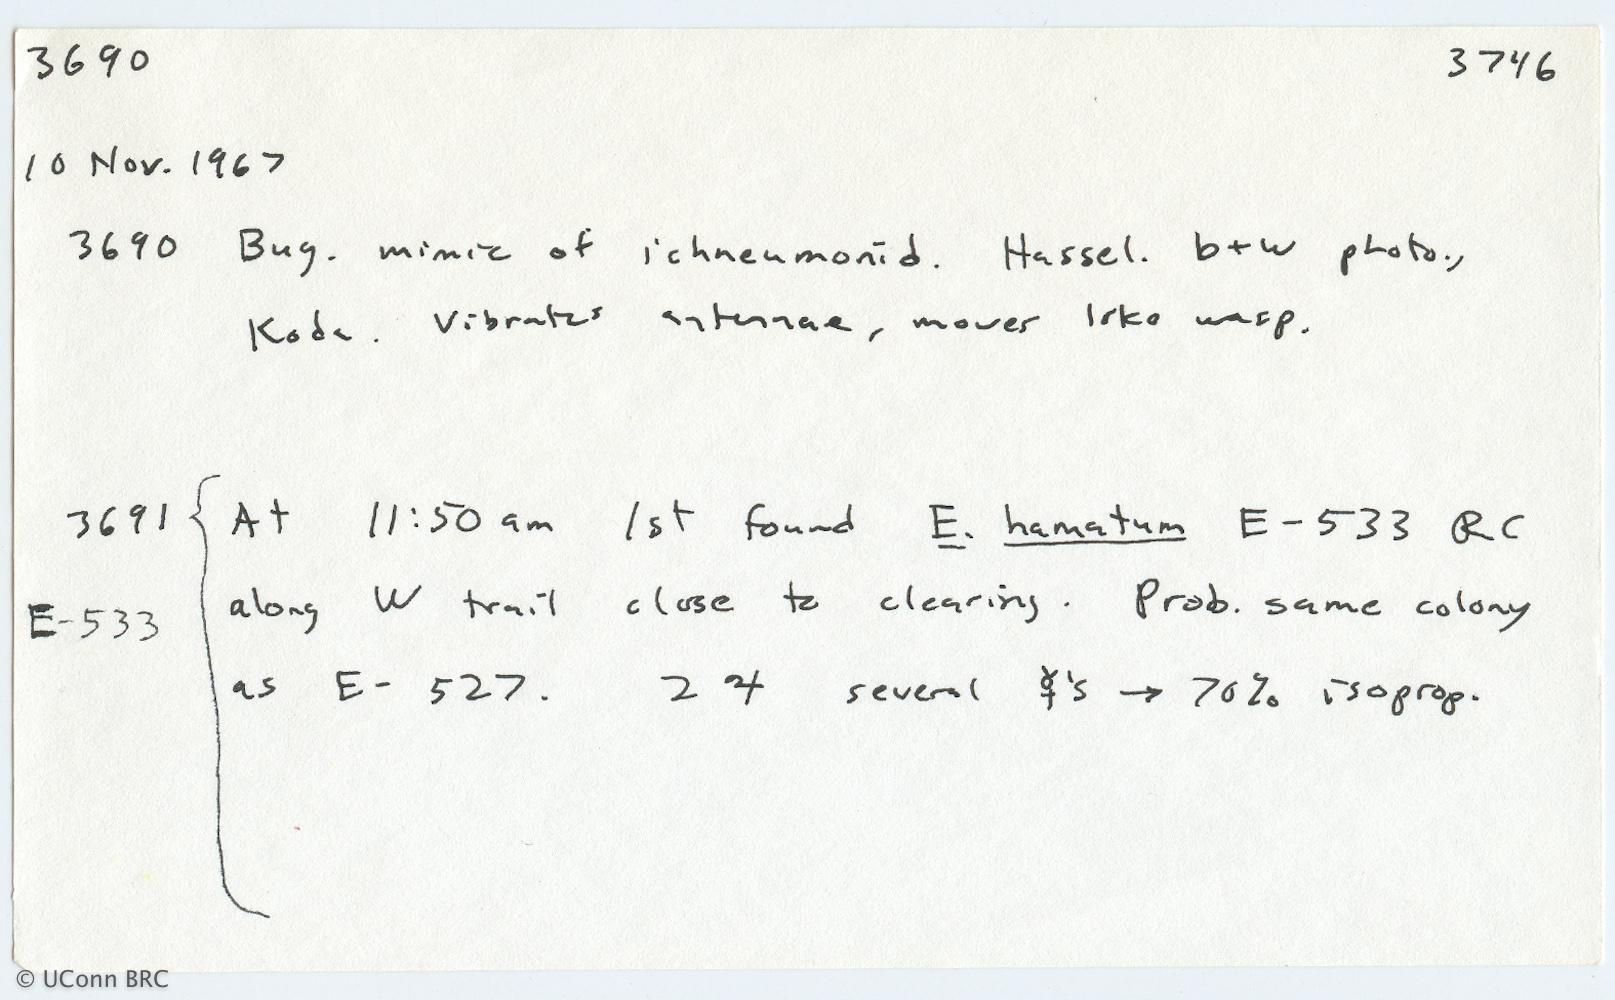 3690 3746
10 Nov. 1967
3690 Bug. mimic of ichneumonid. Hassel. b+w photo.,
Koda. Vibrates antennae, moves like wasp.
3691 { At 11:50 am 1st found E. hamatum E-533 RC
along W trail close to clearing. Prob. same colony
E-533
as E-527. 2 ♃ several ☿'s → 70% isoprop.
© UConn BRC